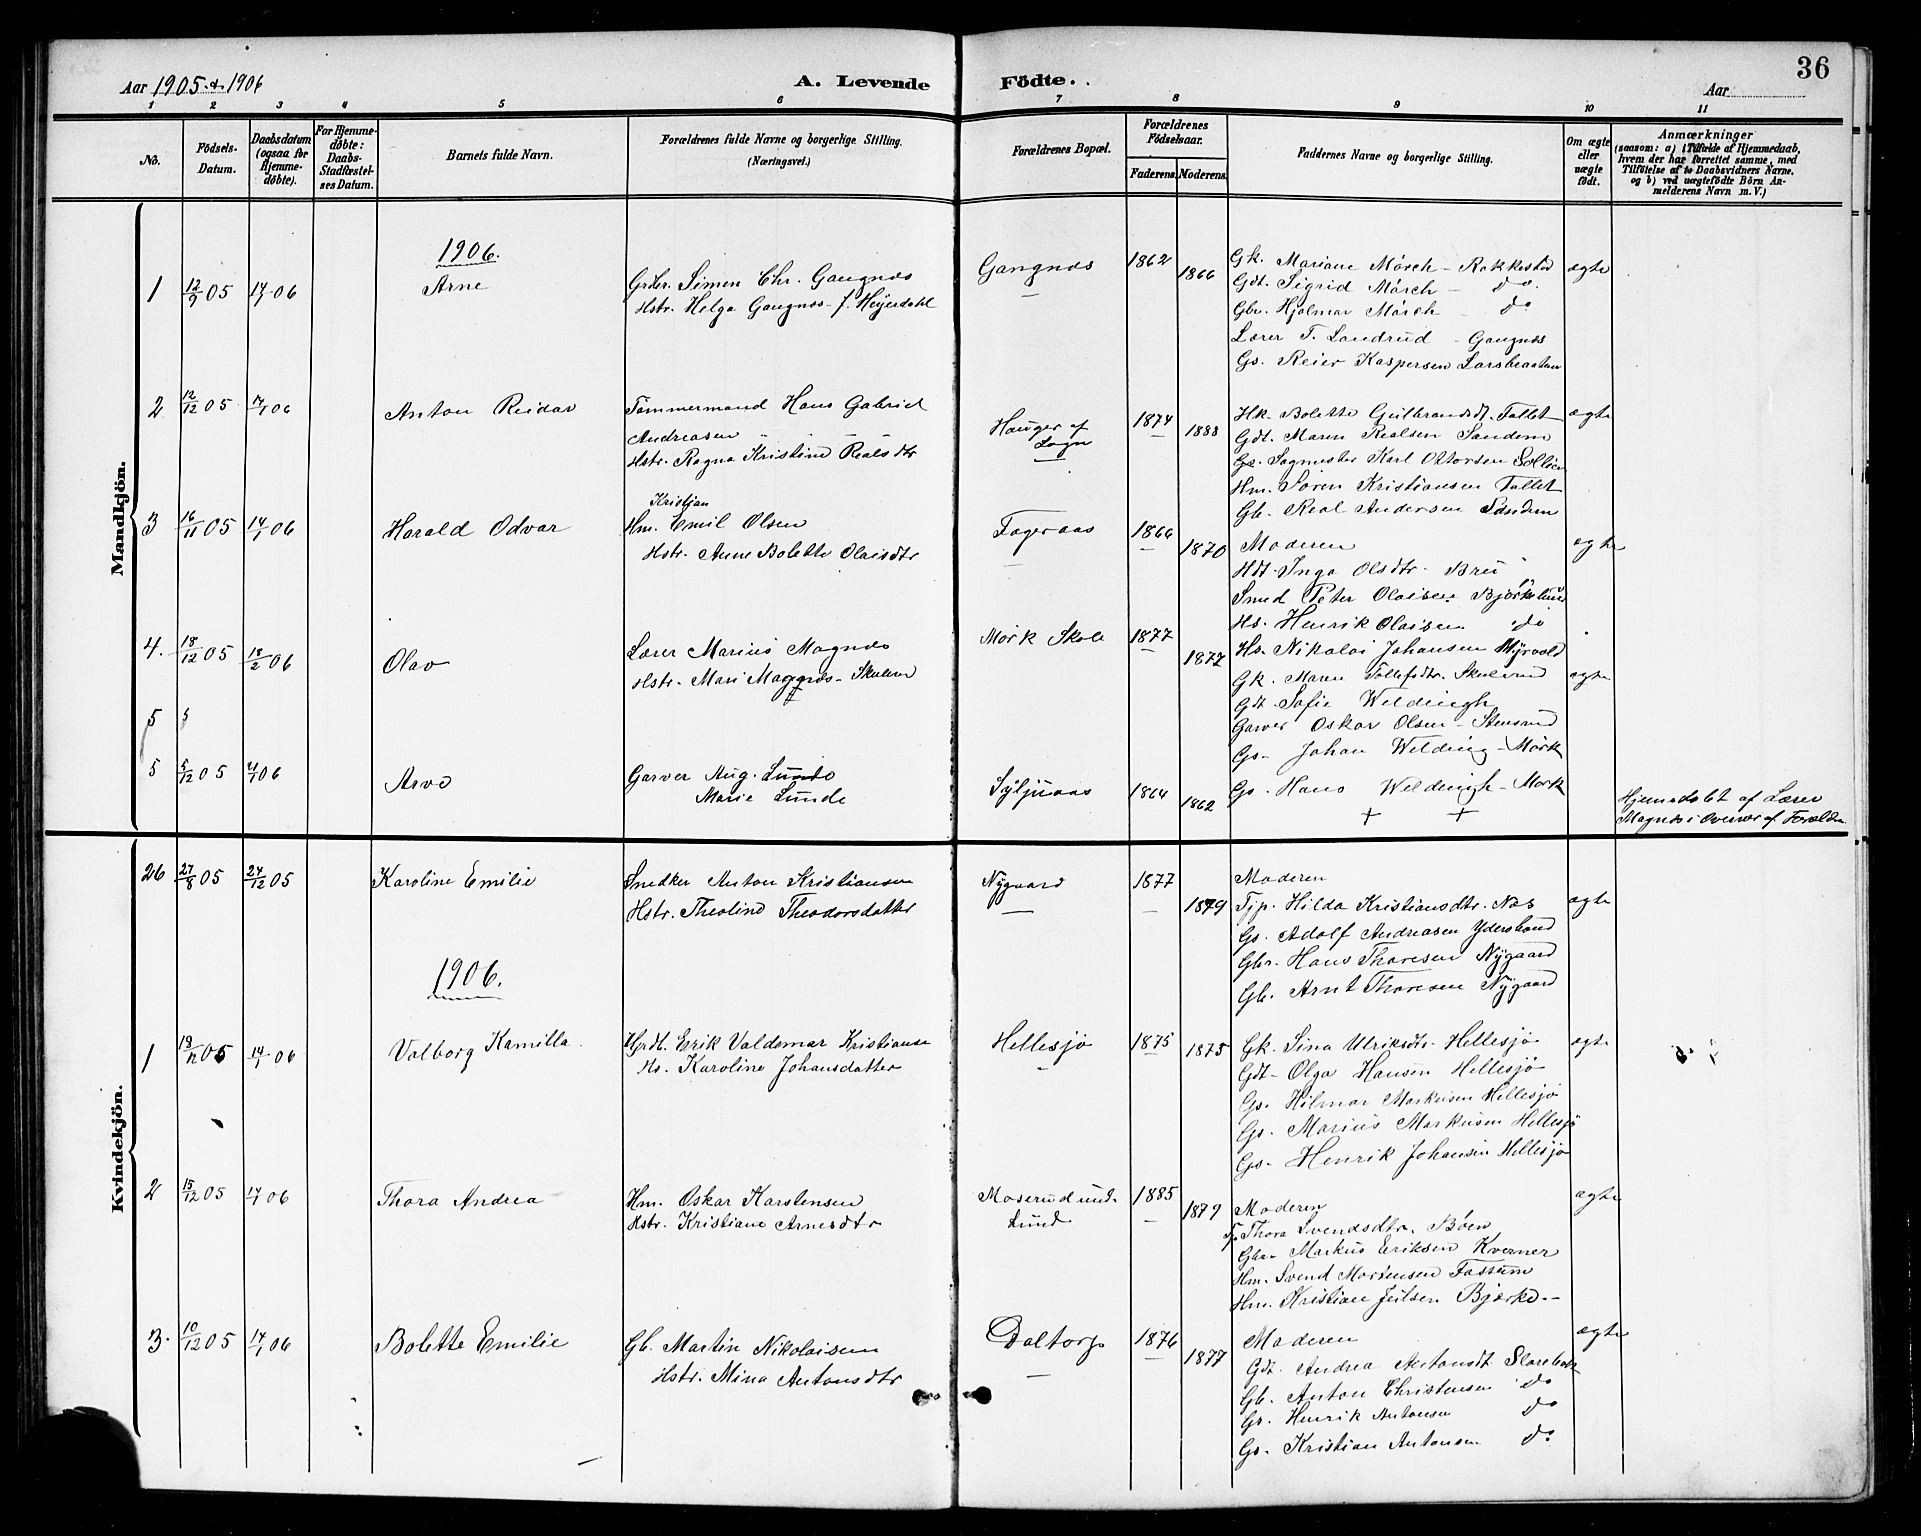 36
Aar 1905 & 1906
A. Levende Födte.
Aar
1 2 3 4 5 6 7 8 9 10 11
No.
Födsels-Datum.
Daabsdatum (ogsaa for Hjemme-döbte).
For Hjemme-døbte: Daabs-Stadfæstel-ses Datum.
Barnets fulde Navn.
Forældrenes fulde Navne og borgerlige Stilling. (Næringsvei.)
Forældrenes Bopæl.
Forældrenes Fødselsaar.
Faderens. Moderens.
Faddernes Navne og borgerlige Stilling.
Om ægte eller uægte födt.
Anmærkninger
(saasom: a) i Tilfælde af Hjemmedaab, hvem der har forrettet samme, med Tilføielse af to Daabsvidners Navne, og b) ved uægtefødte Börn An-melderens Navn m. V.)
Mandkjön.
1906.
1 12/9 05 14/1 06 Arne
Grdbr. Simen Chr. Gangnæs
Hstr. Helga Gangnæs f. Heyerdahl
Gangnæs 1862 1866
Gk. Mariane Mörch - Rakkestad ægte
Gdt. Sigrid Mörch - do.
Gbr. Hjalmar Mörch - do
Lærer T. Landrud - Gangnæs
Gs. Reier Kaspersen Larsbraaten
2 12/12 05 14/1 06 Anton Reidar
Tömmermand Hans Gabriel
Andreasen
Hstr. Ragna Kristine Realsdtr
Hauger af
Sogn
1874 1883
Hk. Bolette Gulbrandsdt. Tallet ægte
Gdt. Maren Realsen Sandem
Gs. Sagmester Karl Ottorsen
Hm. Søren Kristiansen Tallet
Gb. Real Andersen Sandem
3 16/11 05 14/1 06 Harald Odvar
Kristian
Hm. Emil Olsen
Hstr. Anne Bolette Olaisdtr
Fageraas 1866 1870
Moderen ægte
Hdt. Inga Olsdtr. Bru
Smed Peter Olaisen Björkelund
Hs. Henrik Olaisen do
4. 18/12 05 18/2 06 Olav
Lærer Marius Magnæs
Hstr. Mari Magnæs - Skulerud
Mørk Skole 1877 1877
Hs. Nikolai Johansen Myrvold
Gk. Maren Tollefsdtr. Skulerud ægte
Gdt. Sofie Weldingh
Garver Oskar Olsen - Stensrud
Gs. Johan Welding - Mørk
Gs. Hans Weldingh - Mørk
5 5
5 5/12 05 06 Arve
Garver Aug. Lunde
Marie Lunde
Syljuaas 1864 1862
+ +
Hjemedöbt af Lærer
Magnæs i Overvær af Foreldre
Kvindekjön.
26 27/8 05 24/12 05 Karoline Emilie
Snedker Anton Kristiansen
Hstr. Theoline Theodorsdatter
Nygaard 1877 1879
Moderen
Tjp. Hilda Kristiansdtr. Næs ægte
Gs. Adolf Andreasen Ydersbond
Gbr. Hans Thoresen Nygaard
Gb. Arnt Thoresen Nygaard
1906.
1 05 14/1 06 Valborg Kamilla
Grdb. Erik Valdemar Kristiansen
Hs. Karoline Johansdatter
Hellesjø 1875 1875
Gk. Sina Ulriksdtr. Hellesjø ægte
Gdt. Olga Hansen Hellesjø
Gs. Hilmar Markusen Hellesjø
Gs. Marius Markusen Hellesjø
Gs. Henrik Johansen Hellesjø
2 15/12 05 14/1 06 Thora Andrea
Hm. Oskar Karstensen
Hstr. Kristiane Arnesdtr
Moserud und.
Lund
1885 1879
Moderen ægte
Tp. Thora Svendsdtr. Böen
Gbr. Markus Eriksen Kverner
Hm. Svend Mortensen Fossum
Hm. Kristian Juilsen Bjørke
3. 10/12 05 14/1 06 Bolette Emilie
Gb. Martin Nikolaisen
Hstr. Mina Antonsdtr
Daltorp 1876 1877
Moderen ægte
Gdt. Andrea Antonsdt.
Gb. Anton Christensen do
Gs. Henrik Antonsen do
Gs. Kristian Antonsen do